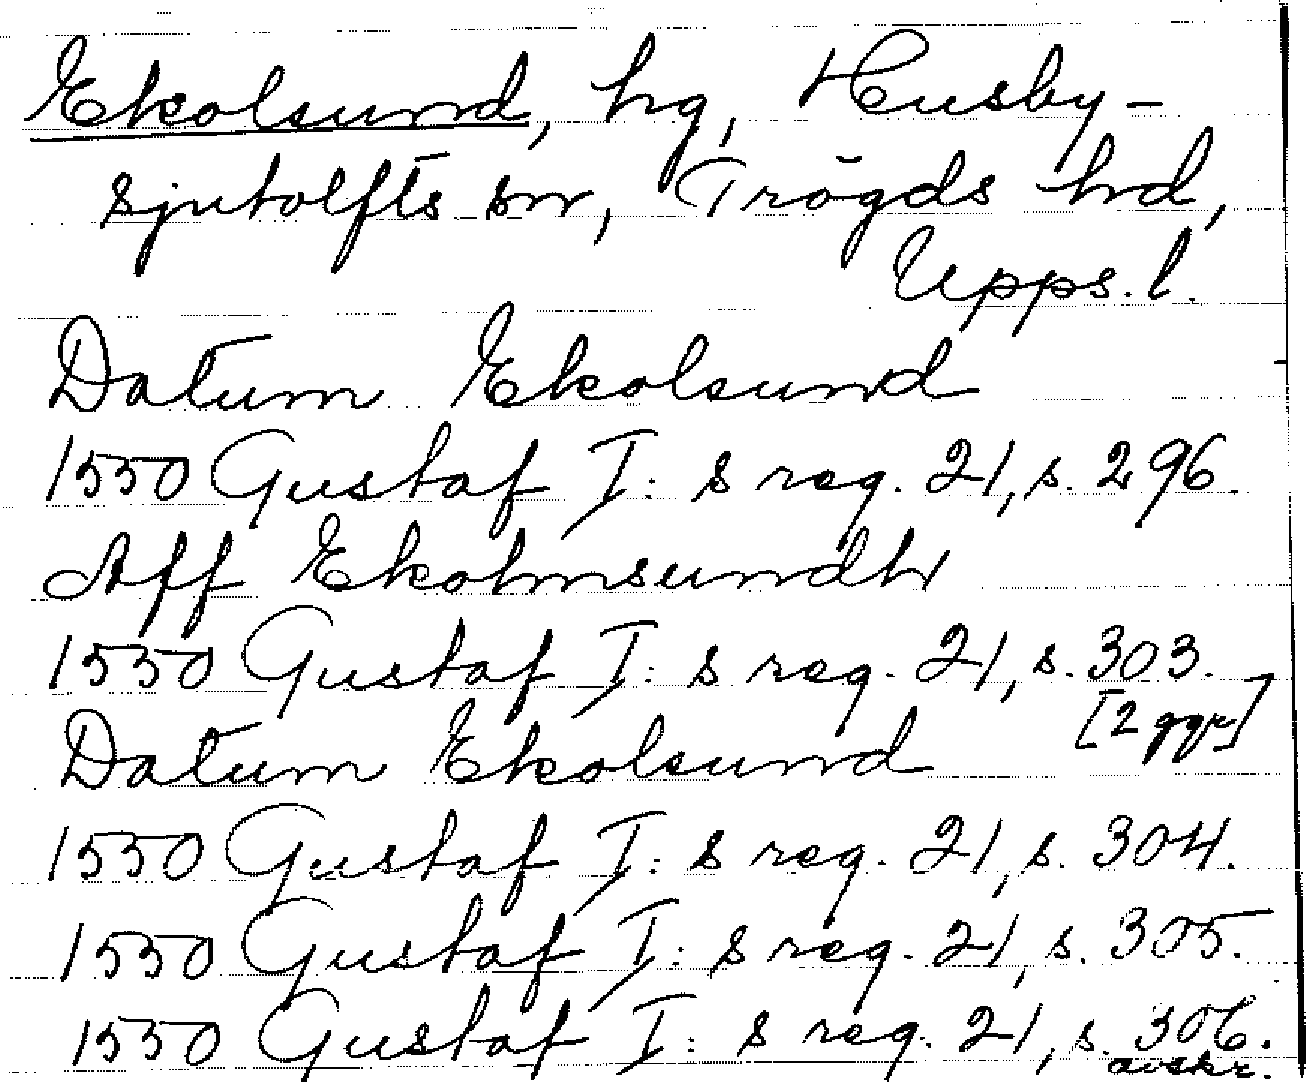 Ekolsund, hg, Husby-
sjutolfts sn, Trögds hd,
Upps. l.
Datum Ekolsund
1550 Gustaf I: s reg. 21, s. 296.
Aff Ekolmsundh
1550 Gustaf I: s reg. 21, s. 303.
[2 ggr]
Datum Ekolsund
1550 Gustaf I: s reg. 21, s. 304.
1550 Gustaf I: s reg. 21, s. 305.
1550 Gustaf I: s reg. 21, s. 306.
avskr.